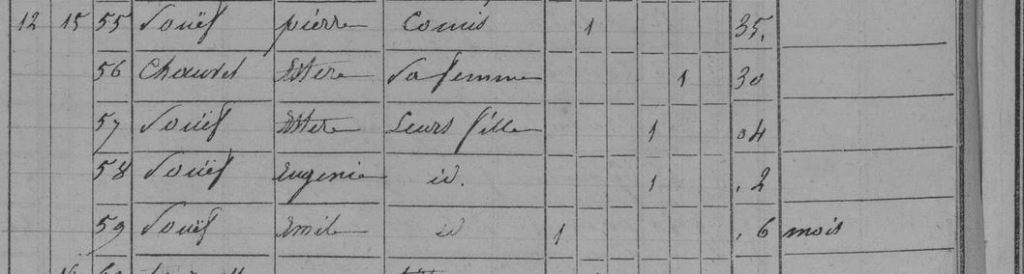 12 15 55 Souëf pierre Comis 1 35.
56 Chauvel Estere Sa femme 1 30
57 Souëf Estere Leurs fille 1 .4
58 Souëf Eugenie id. 1 .2
59 Souëf Emile id 1 .6 mois